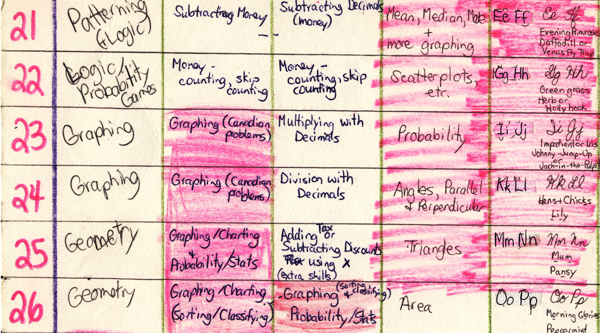 21
Patterning
(+Logic)
Subtracting Money
Subtracting Decimals
(money)
Mean, Median, Mode
+
more graphing
Ee Ff
Ee Ff
Evening Primrose
Daffodil or
Venus Fly Trap
22
Logic/
Probability
Games
Money -
counting, skip
counting
Money -
counting, skip
counting
Scatterplots,
etc.
Gg Hh
Gg Hh
Green grass
Herb or
Hollyhock
23
Graphing
Graphing (Canadian
poblems)
Multiplying with
Decimals
Probability
Ii Jj
Ii Jj
Impatient or Iris
Johnny-Jump-Up
or
Jack-in-the-Pulpit
24
Graphing
Graphing (Canadian
poblems)
Division with
Decimals
Angles, Parallel
& Perpendicular
Kk Ll
Kk Ll
Hens + Chicks
Lily
25
Geometry
Graphing/Charting
+
Probability/Stats
Adding Tax or
Subtracting Discounts
using X
(extra skills)
Triangles
Mm Nn
Mm Nn
Mum
Pansy
26
Geometry
Graphing/Charting
(Sorting/Classifying)
Graphing (Sorting & classifying)
Probability/Stats
Area
Oo Pp
Oo Pp
Morning Glories
Peppermint